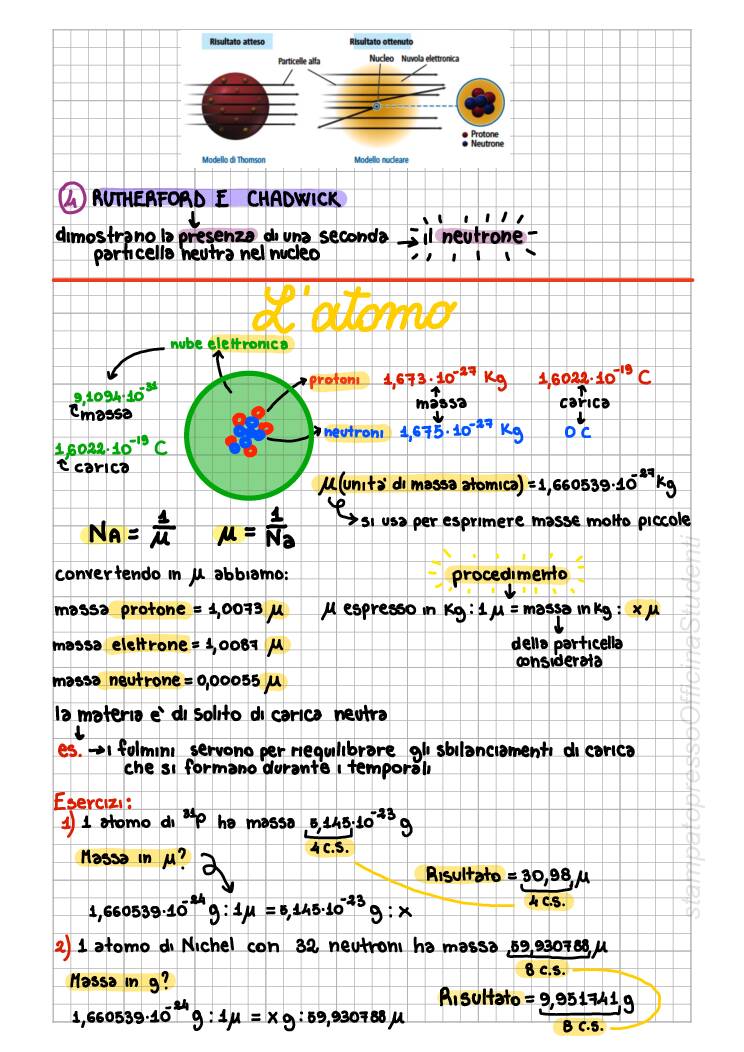 Risultato atteso
Risultato ottenuto
Particelle alfa
Nucleo
Nuvola elettronica
Protone
Neutrone
Modello di Thomson
Modello nucleare
4 RUTHERFORD E CHADWICK
dimostrano la presenza di una seconda → il neutrone
particella neutra nel nucleo
L'atomo
nube elettronica
9,1094·10⁻³¹
massa
1,6022·10⁻¹⁹ C
carica
protoni 1,673·10⁻²⁷ Kg 1,6022·10⁻¹⁹ C
massa carica
neutroni 1,675·10⁻²⁷ Kg 0 C
μ (unità di massa atomica) = 1,660539·10⁻²⁷ Kg
→ si usa per esprimere masse molto piccole
NA = 1/μ μ = 1/Na
convertendo in μ abbiamo:
procedimento
massa protone = 1,0073 μ
μ espresso in Kg : 1μ = massa in kg : x μ
della particella
considerata
massa elettrone = 1,0087 μ
massa neutrone = 0,00055 μ
la materia è di solito di carica neutra
es. → i fulmini servono per riequilibrare gli sbilanciamenti di carica
che si formano durante i temporali
Esercizi:
1) 1 atomo di ³¹P ha massa 5,145·10⁻²³ g
4 C.S.
Massa in μ?
Risultato = 30,98 μ
4 C.S.
1,660539·10⁻²⁴ g : 1μ = 5,145·10⁻²³ g : x
2) 1 atomo di Nichel con 32 neutroni ha massa 59,930788 μ
8 C.S.
Massa in g?
Risultato = 9,951741 g
8 C.S.
1,660539·10⁻²⁴ g : 1μ = x g : 59,930788 μ
stampatopressoOfficinaStudenti